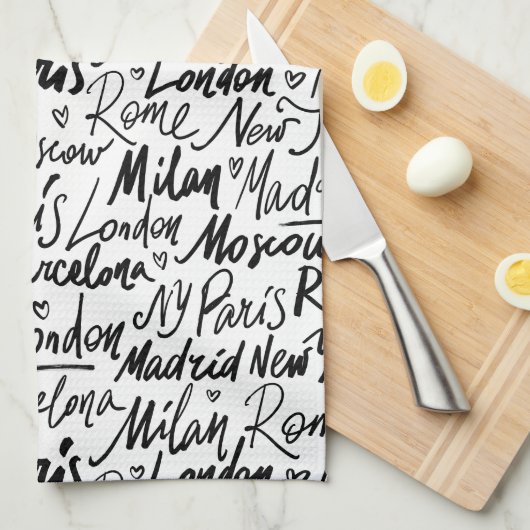 ris London
Rome New
scow Milan Mad
is London Moscow
rcelona
NY Paris R
ondon Madrid New
elona Milan Rom
ris London